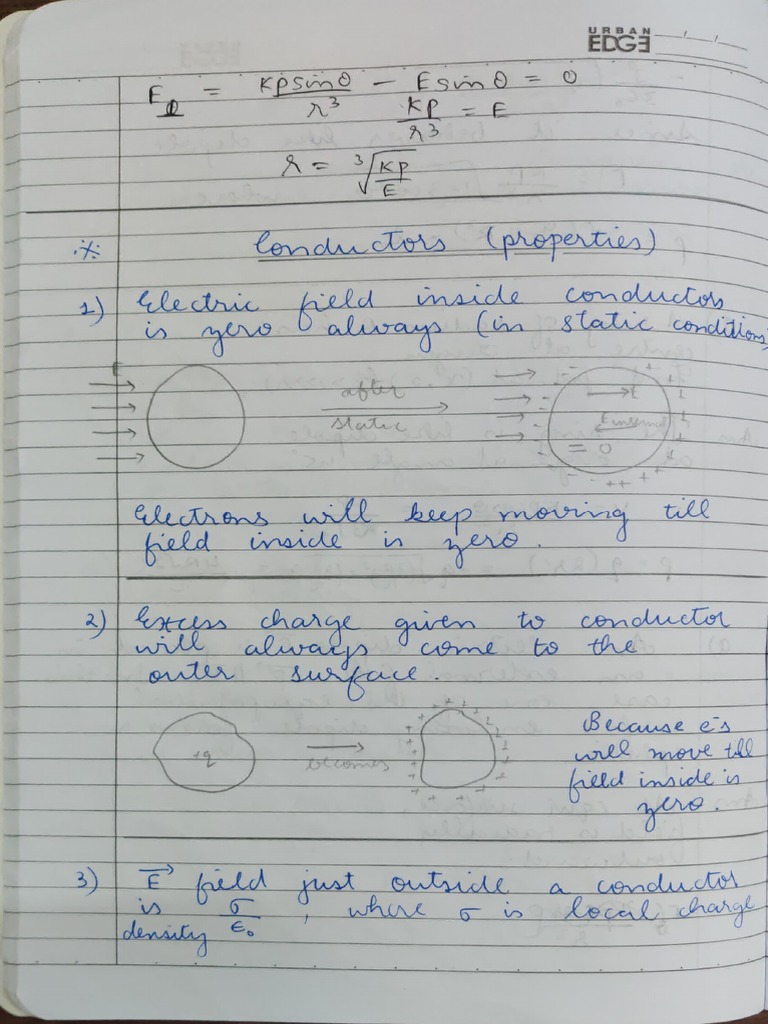 URBAN
EDGE
E⊥ = Kpsinθ/r³ − Esinθ = 0
Kp/r³ = E
r = ³√(Kp/E)
Conductors (properties)
1) Electric field inside conductors
is zero always (in static conditions)
E
after
static
E
Einternal
= 0
Electrons will keep moving till
field inside is zero.
2) Excess charge given to conductor
will always come to the
outer surface.
+q
becomes
Because e⁻s
will move till
field inside is
zero.
3) E⃗ field just outside a conductor
is σ/ε₀, where σ is local charge
density